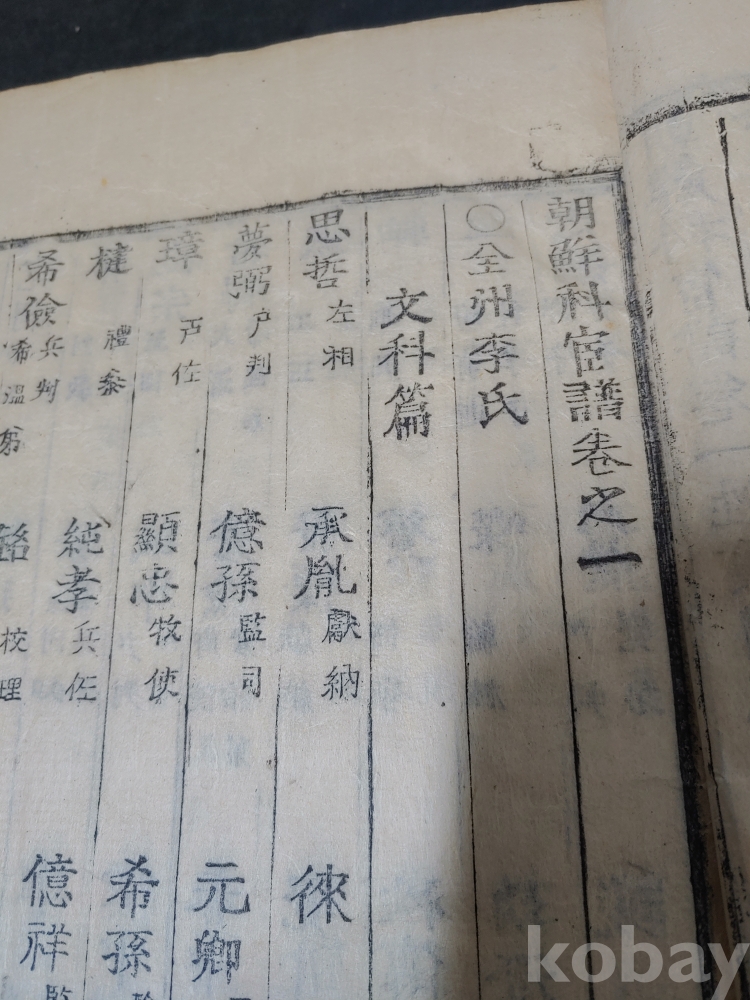 朝鮮科宦譜卷之一
○全州李氏
文科篇
思哲 左相 承胤 獻納 徠
夢弼 户判 億孫 監司 元卿
璋 戸佐 顯忠 牧使 希孫
楗 禮參 純孝 兵佐 億祥 監
希儉 兵判 希温弟 校理
kobay